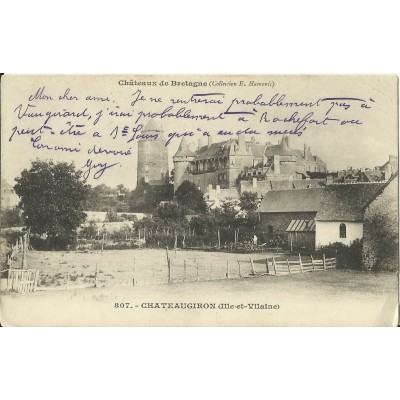 Châteaux de Bretagne (Collection E. Hamonic)
Mon cher ami. Je ne rentrerai probablement pas à
Vaugirard, j'irai probablement à Rochefort ou
peut-être à St Louis
Ton ami dévoué
Guy
807. - CHATEAUGIRON (Ille-et-Vilaine)